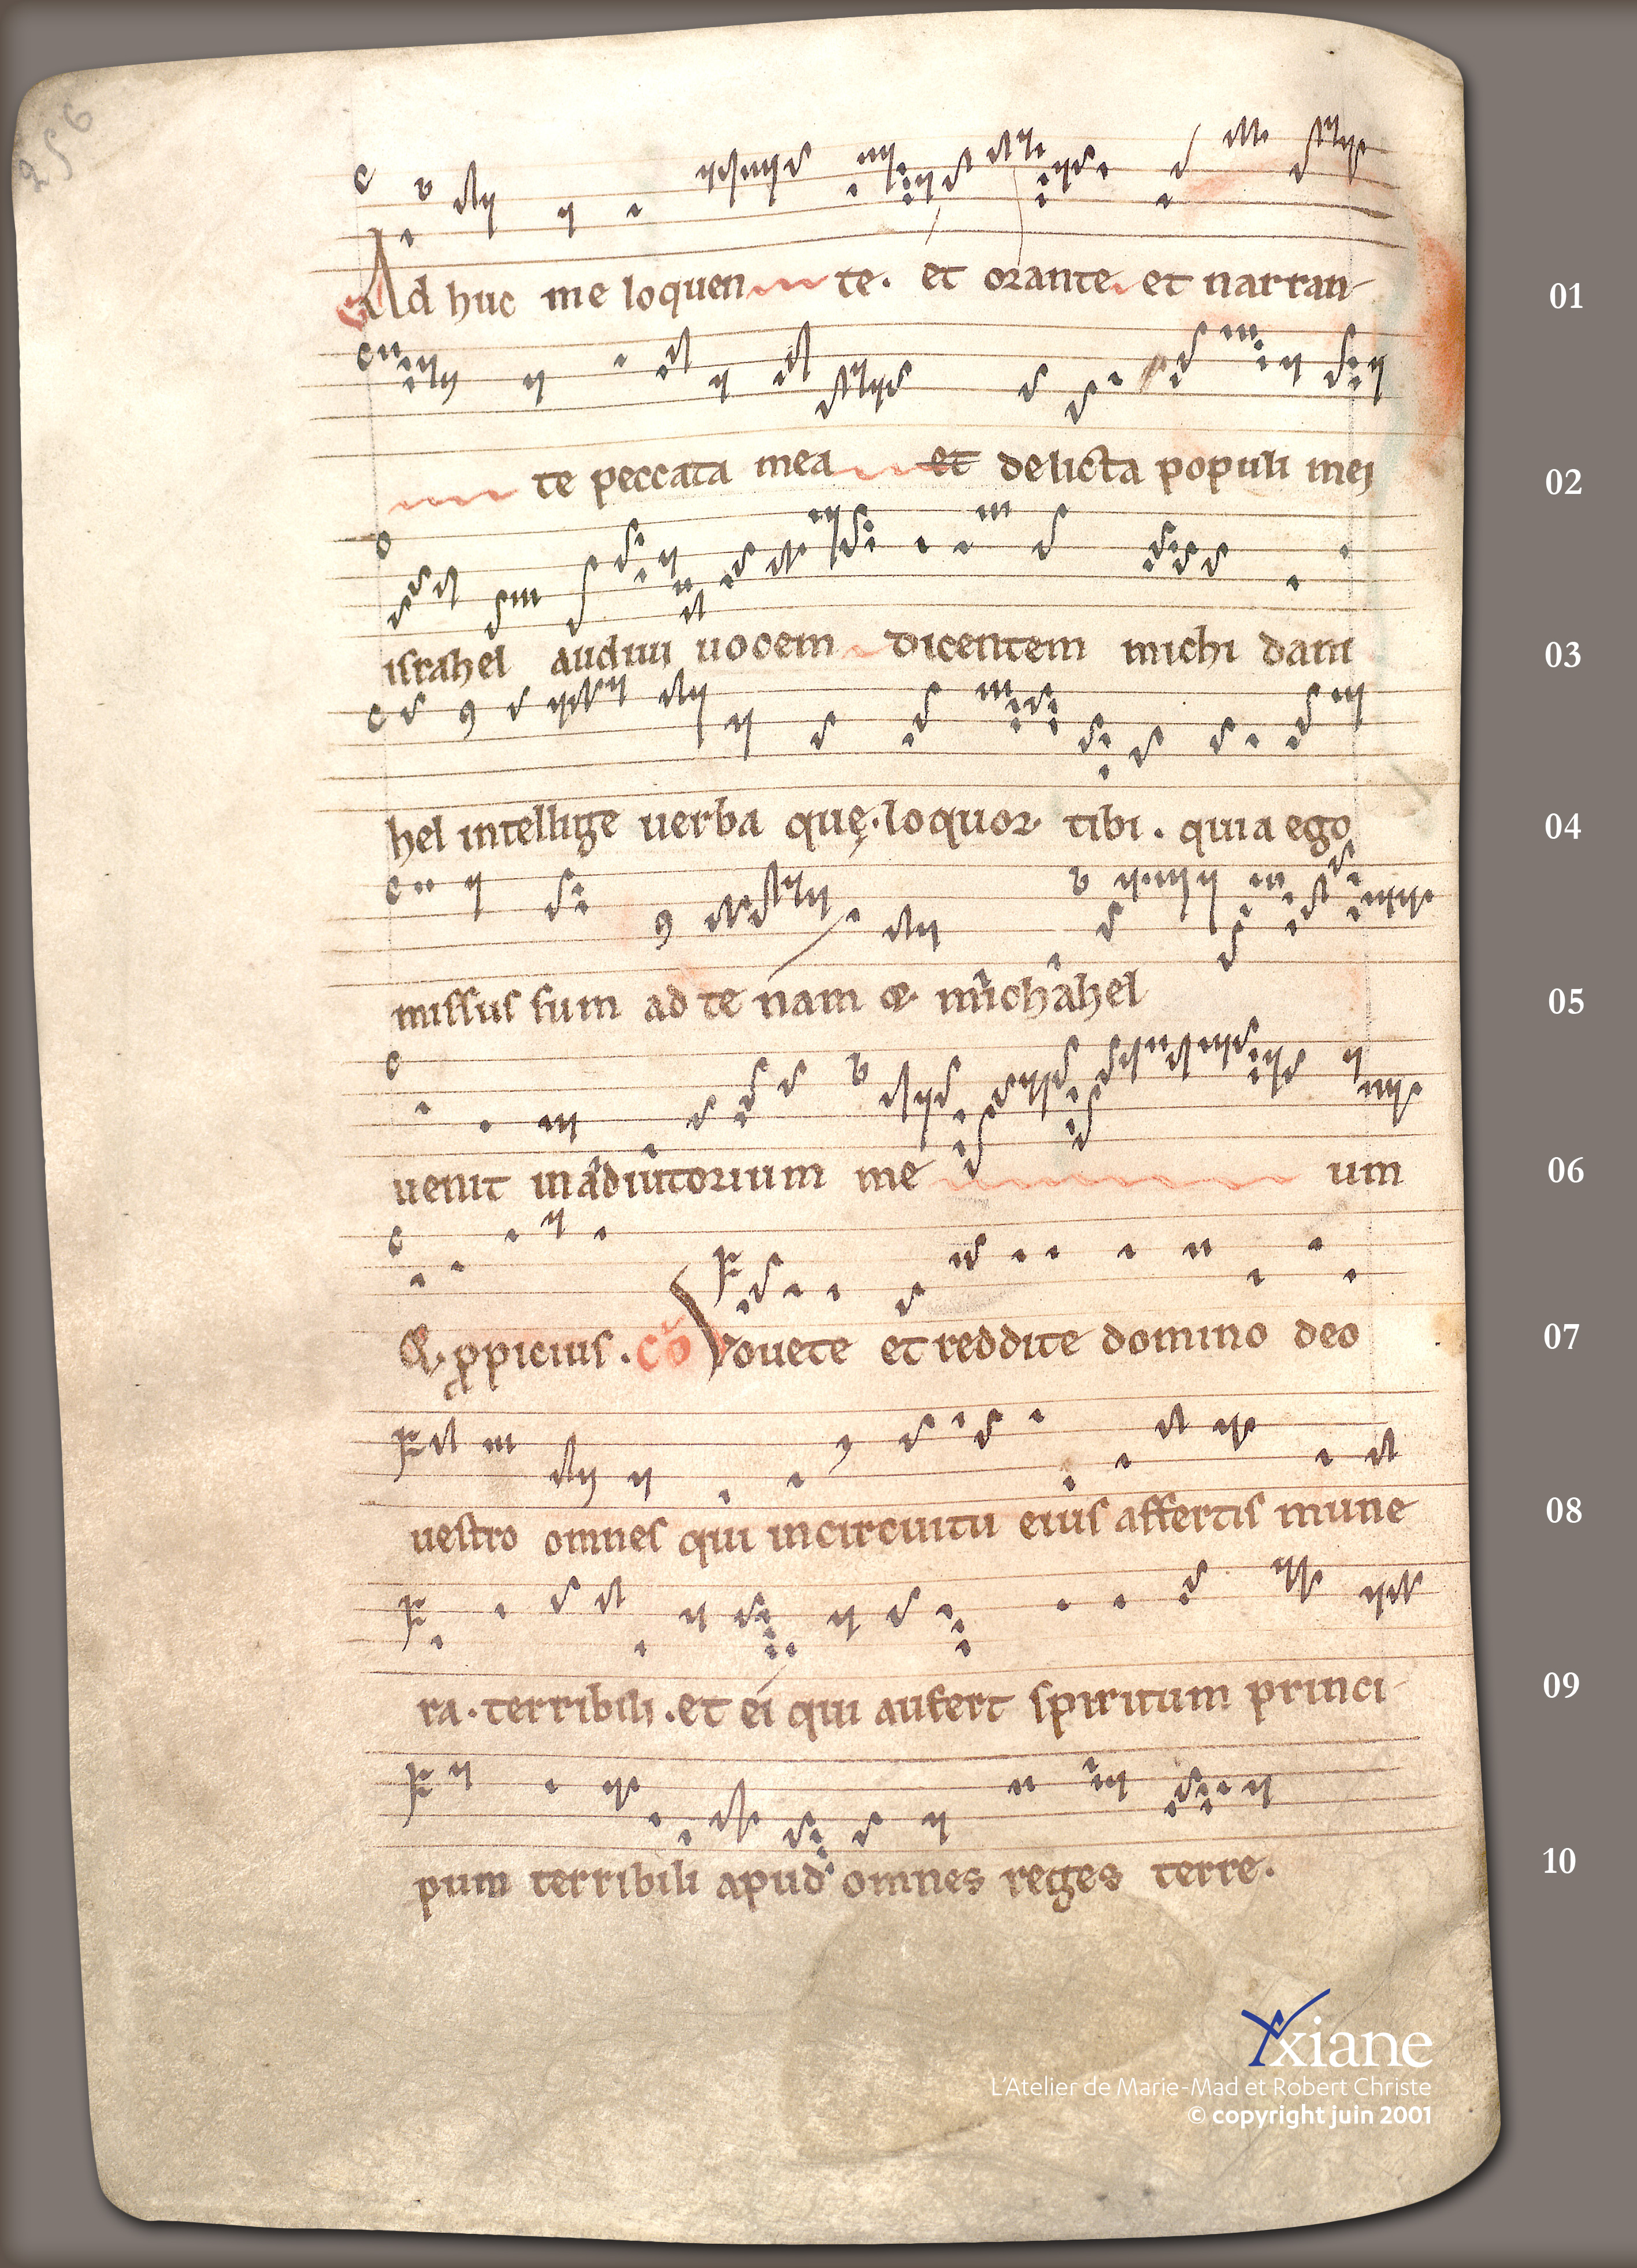 256
Ad huc me loquen te. et orante. et narran 01
te peccata mea et delicta populi mei 02
israhel audiui uocem dicentem michi dani 03
hel intellige uerba quę. loquor tibi. quia ego 04
missus sum ad te nam &. michahel 05
uenit in adiutorium me um 06
&. ꝓpicius. cō Vouete et reddite domino deo 07
uestro omnes qui incircuitu eius affertis mune 08
ra. terribili. et ei qui aufert spiritum princi 09
pum terribili apud omnes reges terre. 10
Axiane
L'Atelier de Marie-Mad et Robert Christe
© copyright juin 2001